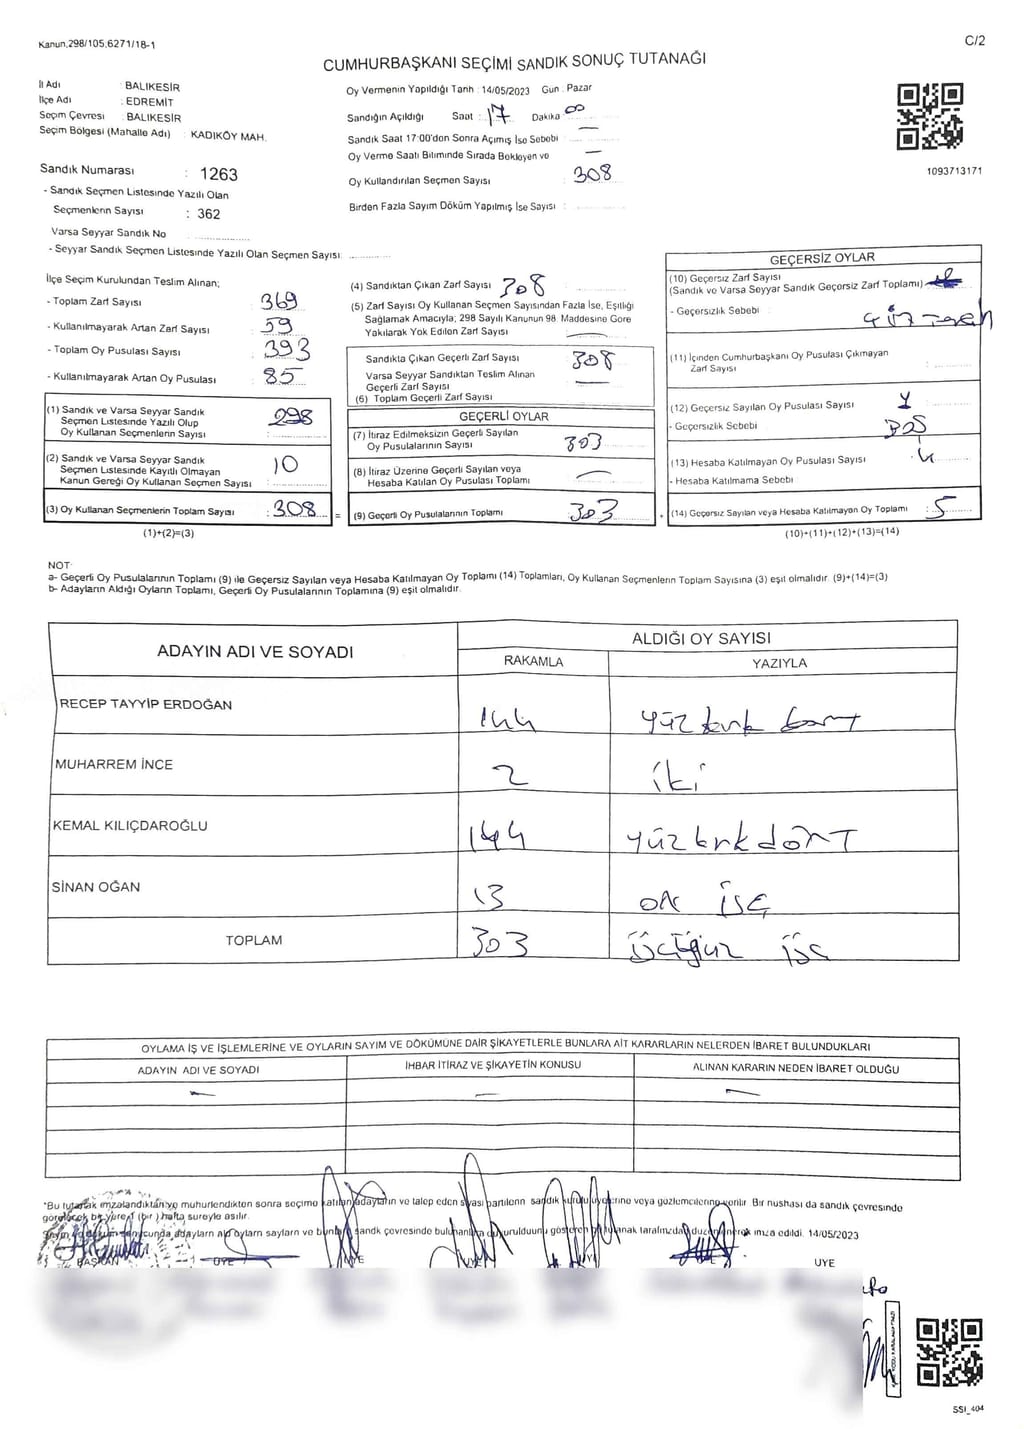 Kanun,298/105,6271/18-1
C/2
CUMHURBAŞKANI SEÇİMİ SANDIK SONUÇ TUTANAĞI
İl Adı : BALIKESİR
İlçe Adı : EDREMİT
Seçim Çevresi : BALIKESİR
Seçim Bölgesi (Mahalle Adı) : KADIKÖY MAH.
Sandık Numarası : 1263
- Sandık Seçmen Listesinde Yazılı Olan
Seçmenlerin Sayısı : 362
Varsa Seyyar Sandık No
- Seyyar Sandık Seçmen Listesinde Yazılı Olan Seçmen Sayısı:
Oy Vermenin Yapıldığı Tarih : 14/05/2023 Gün : Pazar
Sandığın Açıldığı Saat : 17 Dakika 00
Sandık Saat 17:00'den Sonra Açımış İse Sebebi : —
Oy Verme Saati Bitiminde Sırada Bekleyen ve —
Oy Kullandırılan Seçmen Sayısı : 308
Birden Fazla Sayım Döküm Yapılmış İse Sayısı :
1093713171
İlçe Seçim Kurulundan Teslim Alınan;
- Toplam Zarf Sayısı : 369
- Kullanılmayarak Artan Zarf Sayısı : 59
- Toplam Oy Pusulası Sayısı : 393
- Kullanılmayarak Artan Oy Pusulası : 85
(1) Sandık ve Varsa Seyyar Sandık
Seçmen Listesinde Yazılı Olup
Oy Kullanan Seçmenlerin Sayısı : 298
(2) Sandık ve Varsa Seyyar Sandık
Seçmen Listesinde Kayıtlı Olmayan
Kanun Gereği Oy Kullanan Seçmen Sayısı : 10
(3) Oy Kullanan Seçmenlerin Toplam Sayısı : 308 =
(1)+(2)=(3)
(4) Sandıktan Çıkan Zarf Sayısı : 308
(5) Zarf Sayısı Oy Kullanan Seçmen Sayısından Fazla İse, Eşitliği
Sağlamak Amacıyla; 298 Sayılı Kanunun 98. Maddesine Göre
Yakılarak Yok Edilen Zarf Sayısı : —
Sandıkta Çıkan Geçerli Zarf Sayısı : 308
Varsa Seyyar Sandıktan Teslim Alınan
Geçerli Zarf Sayısı : —
(6) Toplam Geçerli Zarf Sayısı :
GEÇERLİ OYLAR
(7) İtiraz Edilmeksizin Geçerli Sayılan
Oy Pusulalarının Sayısı : 303
(8) İtiraz Üzerine Geçerli Sayılan veya
Hesaba Katılan Oy Pusulası Toplamı : —
(9) Geçerli Oy Pusulalarının Toplamı : 303 +
GEÇERSİZ OYLAR
(10) Geçersiz Zarf Sayısı
(Sandık ve Varsa Seyyar Sandık Geçersiz Zarf Toplamı) :
- Geçersizlik Sebebi :
(11) İçinden Cumhurbaşkanı Oy Pusulası Çıkmayan
Zarf Sayısı :
(12) Geçersiz Sayılan Oy Pusulası Sayısı :
- Geçersizlik Sebebi :
(13) Hesaba Katılmayan Oy Pusulası Sayısı : 4
- Hesaba Katılmama Sebebi
(14) Geçersiz Sayılan veya Hesaba Katılmayan Oy Toplamı : 5
(10)+(11)+(12)+(13)=(14)
NOT:
a- Geçerli Oy Pusulalarının Toplamı (9) ile Geçersiz Sayılan veya Hesaba Katılmayan Oy Toplamı (14) Toplamları, Oy Kullanan Seçmenlerin Toplam Sayısına (3) eşit olmalıdır. (9)+(14)=(3)
b- Adayların Aldığı Oyların Toplamı, Geçerli Oy Pusulalarının Toplamına (9) eşit olmalıdır.
ADAYIN ADI VE SOYADI
ALDIĞI OY SAYISI
RAKAMLA YAZIYLA
RECEP TAYYİP ERDOĞAN 144 yüz kırk dört
MUHARREM İNCE 2 iki
KEMAL KILIÇDAROĞLU 144 yüz kırk dört
SİNAN OĞAN 13 on üç
TOPLAM 303 üçyüz üç
OYLAMA İŞ VE İŞLEMLERİNE VE OYLARIN SAYIM VE DÖKÜMÜNE DAİR ŞİKAYETLERLE BUNLARA AİT KARARLARIN NELERDEN İBARET BULUNDUKLARI
ADAYIN ADI VE SOYADI İHBAR İTİRAZ VE ŞİKAYETİN KONUSU ALINAN KARARIN NEDEN İBARET OLDUĞU
— — —
"Bu tutanak imzalandıktan ve mühürlendikten sonra seçime katılan adayların ve talep eden siyasi partilerin sandık kurulu üyelerine veya gözlemcilerine verilir. Bir nüshası da sandık çevresinde
görülecek bir yere 1 (bir) hafta süreyle asılır.
adayların aldı oyların sayların ve bunların sandık çevresinde bulunanlara duyurulduunu gösteren bu tutanak tarafımızdan düzenlenerek imza edildi. 14/05/2023
BAŞKAN ÜYE ÜYE ÜYE
SSI_404